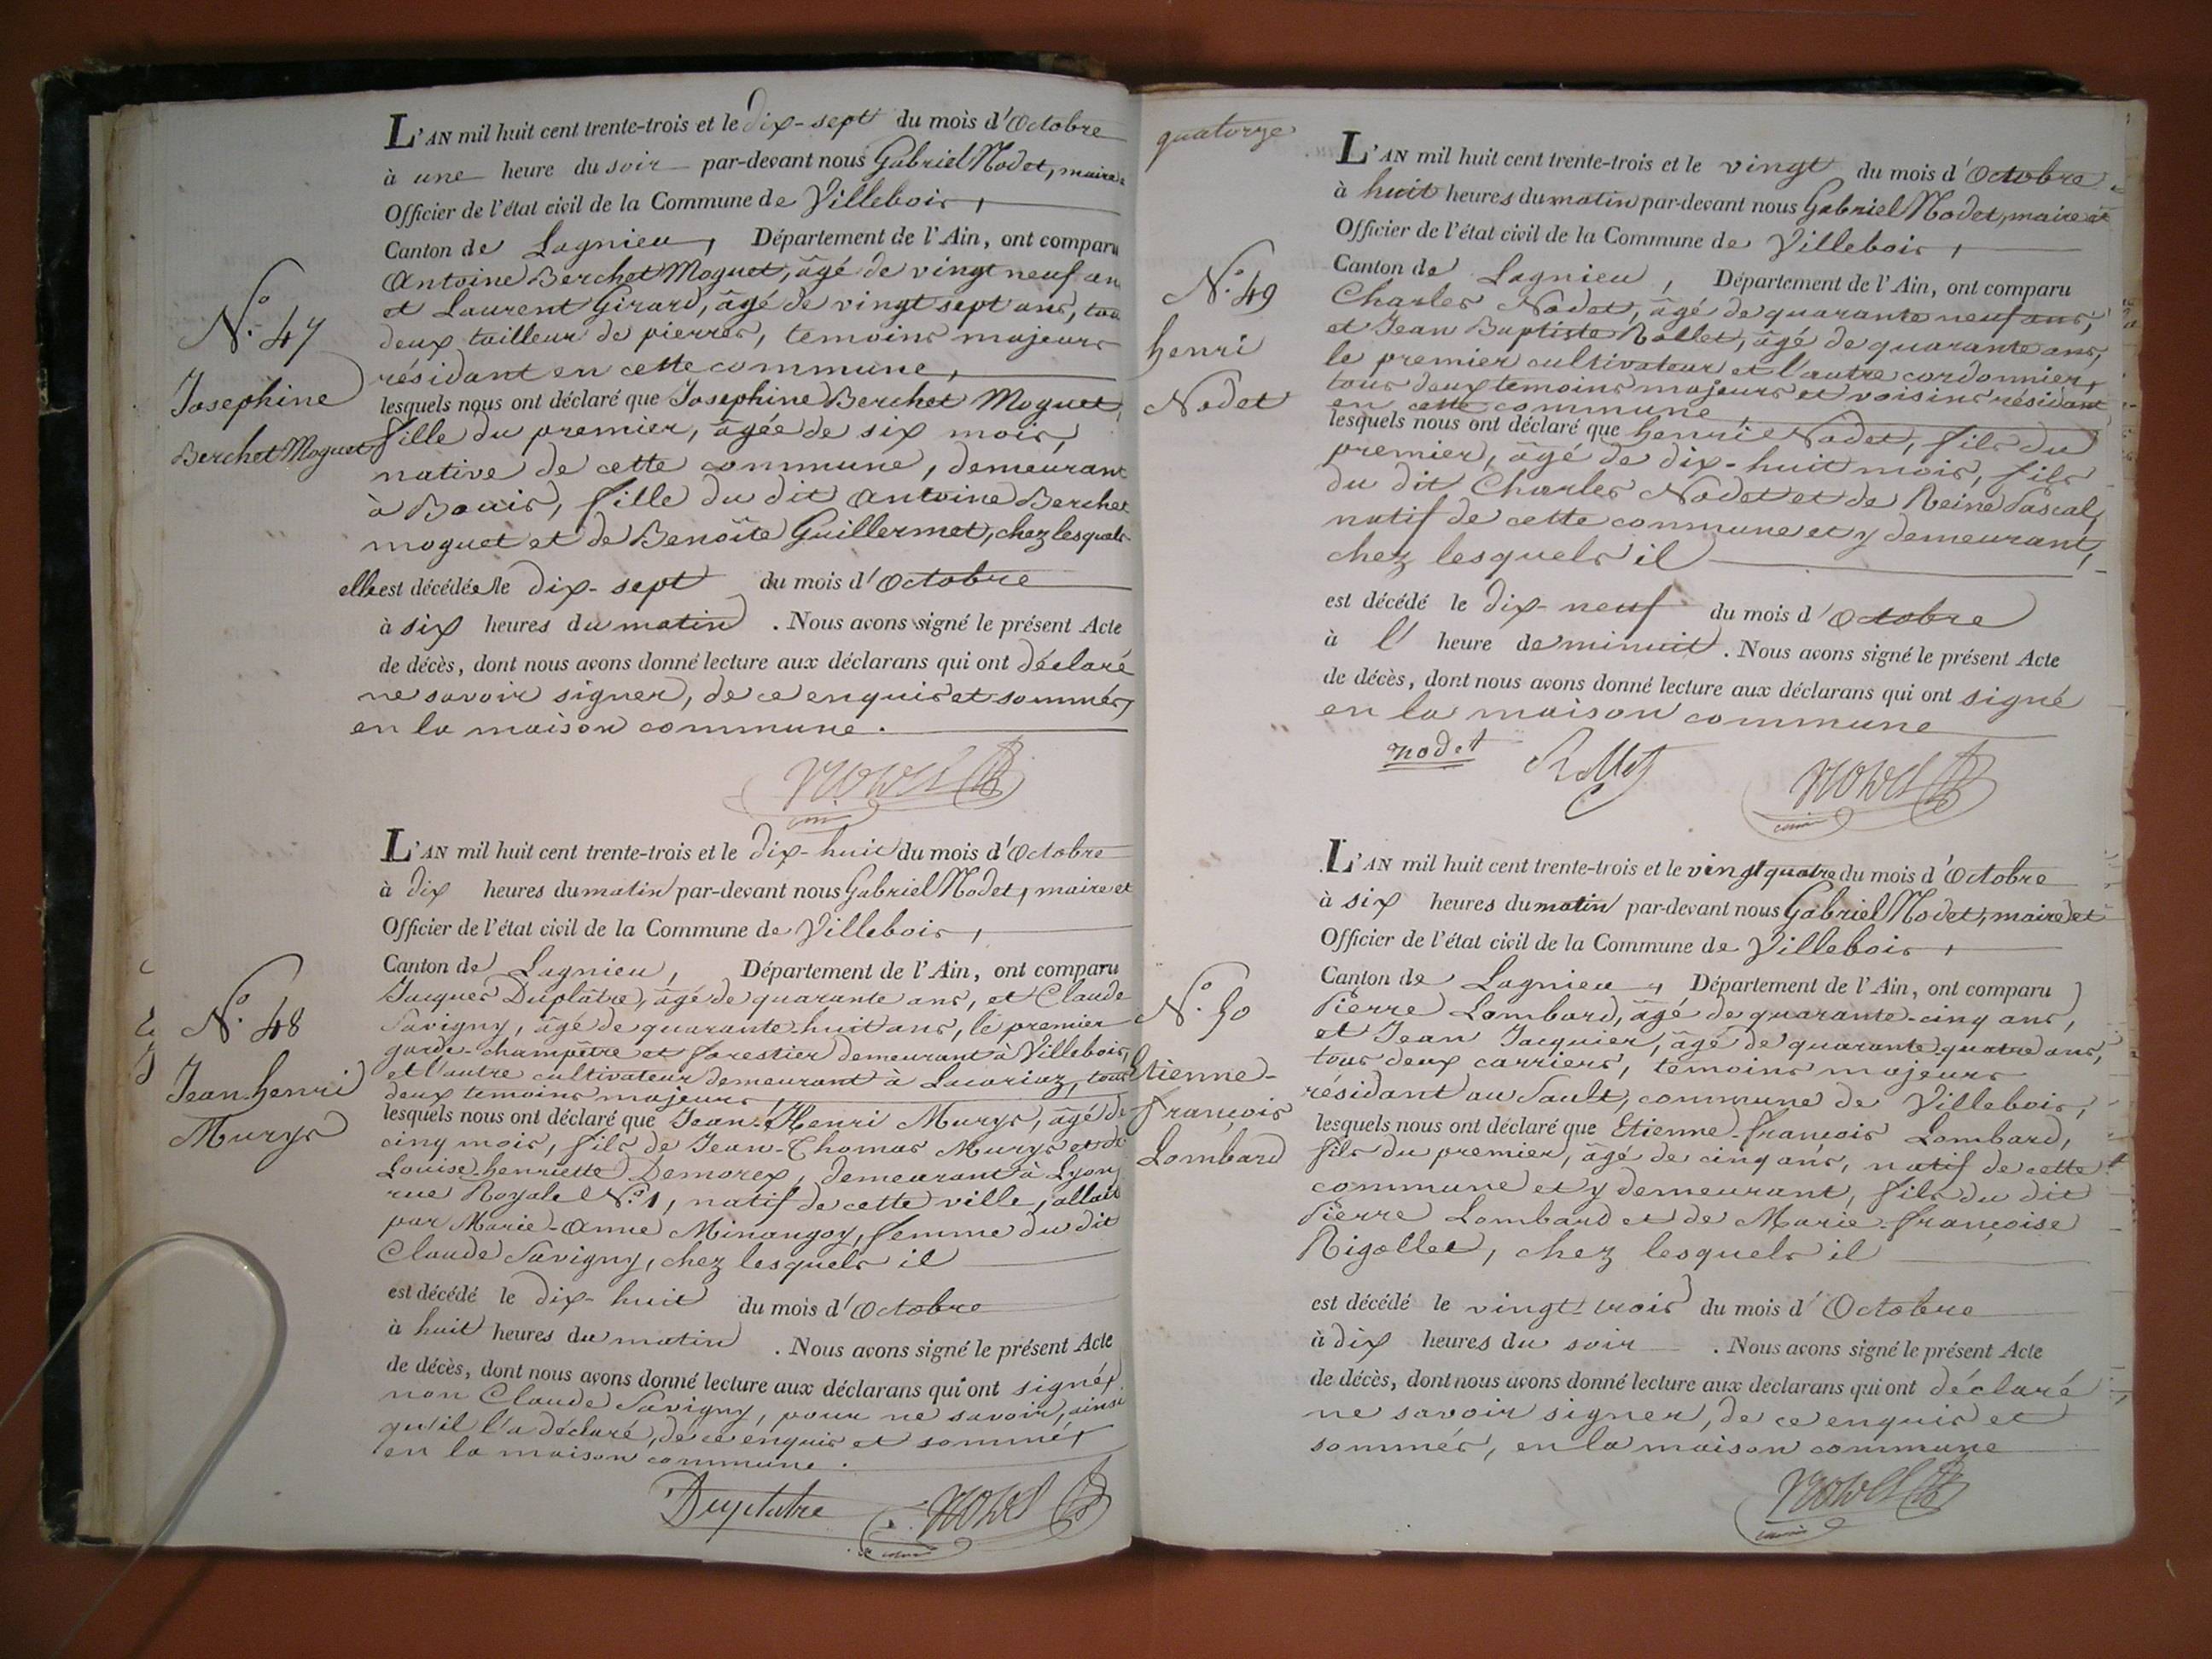 L'AN mil huit cent trente-trois et le dix-sept du mois d'Octobre
à une heure du soir par-devant nous Gabriel Nodet, maire
Officier de l'état civil de la Commune de Villebois,
Canton de Lagnieu, Département de l'Ain, ont comparu
Antoine Berchet Moguet, âgé de vingt neuf an
et Laurent Girard, âgé de vingt sept ans, tou
deux tailleur de pierres, temoins majeurs
résidant en cette commune,
lesquels nous ont déclaré que Josephine Berchet Moguet,
fille du premier, âgée de six mois,
native de cette commune, demeurant
à Bouis, fille du dit Antoine Berchet
moguet et de Benoîte Guillermet, chez lesquels
elle est décédée le dix-sept du mois d'Octobre
à six heures du matin. Nous avons signé le présent Acte
de décès, dont nous avons donné lecture aux déclarans qui ont déclaré
ne savoir signer, de ce enquis et sommés,
en la maison commune.
Nodet
N.º 47
Josephine
Berchet Moguet
L'AN mil huit cent trente-trois et le dix-huit du mois d'Octobre
à dix heures du matin par-devant nous Gabriel Nodet, maire et
Officier de l'état civil de la Commune de Villebois,
Canton de Lagnieu, Département de l'Ain, ont comparu
Jacques Duplâtre, âgé de quarante ans, et Claude
Savigny, âgé de quarante-huit ans, le premier
garde-champêtre et forestier demeurant à Villebois,
et l'autre cultivateur demeurant à Lucorioz, tous
deux temoins majeurs,
lesquels nous ont déclaré que Jean-Henri Murys, âgé de
cinq mois, fils de Jean-Thomas Murys et de
Louise henriette Demorex, demeurant à Lyon
rue Royale N.º 1, natif de cette ville, allait
par Marie-Anne Minangoy, femme du dit
Claude Savigny, chez lesquels il
est décédé le dix-huit du mois d'Octobre
à huit heures du matin. Nous avons signé le présent Acte
de décès, dont nous avons donné lecture aux déclarans qui ont signé,
non Claude Savigny, pour ne savoir, ainsi
qu'il l'a déclaré, de ce enquis et sommé,
en la maison commune.
Duplatre Nodet
N.º 48
Jean-henri
Murys
quatorze
L'AN mil huit cent trente-trois et le vingt du mois d'Octobre
à huit heures du matin par-devant nous Gabriel Nodet, maire et
Officier de l'état civil de la Commune de Villebois,
Canton de Lagnieu, Département de l'Ain, ont comparu
Charles Nodet, âgé de quarante neuf ans,
et Jean Baptiste Rollet, âgé de quarante ans,
le premier cultivateur et l'autre cordonnier,
tous deux temoins majeurs et voisins résidant
en cette commune
lesquels nous ont déclaré que henri Nodet, fils du
premier, âgé de dix-huit mois, fils
du dit Charles Nodet et de Reine Pascal,
natif de cette commune et y demeurant,
chez lesquels il
est décédé le dix-neuf du mois d'Octobre
à l'heure de minuit. Nous avons signé le présent Acte
de décès, dont nous avons donné lecture aux déclarans qui ont signé
en la maison commune
nodet Rollet Nodet
N.º 49
henri
Nodet
L'AN mil huit cent trente-trois et le vingt quatre du mois d'Octobre
à six heures du matin par-devant nous Gabriel Nodet, maire et
Officier de l'état civil de la Commune de Villebois,
Canton de Lagnieu, Département de l'Ain, ont comparu
Pierre Lombard, âgé de quarante-cinq ans,
et Jean Jacquier, âgé de quarante quatre ans,
tous deux carriers, témoins majeurs
résidant au Sault, commune de Villebois,
lesquels nous ont déclaré que Etienne-françois Lombard,
fils du premier, âgé de cinq ans, natif de cette
commune et y demeurant, fils du dit
Pierre Lombard et de Marie-françoise
Rigollet, chez lesquels il
est décédé le vingt-trois du mois d'Octobre
à dix heures du soir. Nous avons signé le présent Acte
de décès, dont nous avons donné lecture aux déclarans qui ont déclaré
ne savoir signer, de ce enquis et
sommés, en la maison commune
Nodet
N.º 50
Etienne-
françois
Lombard